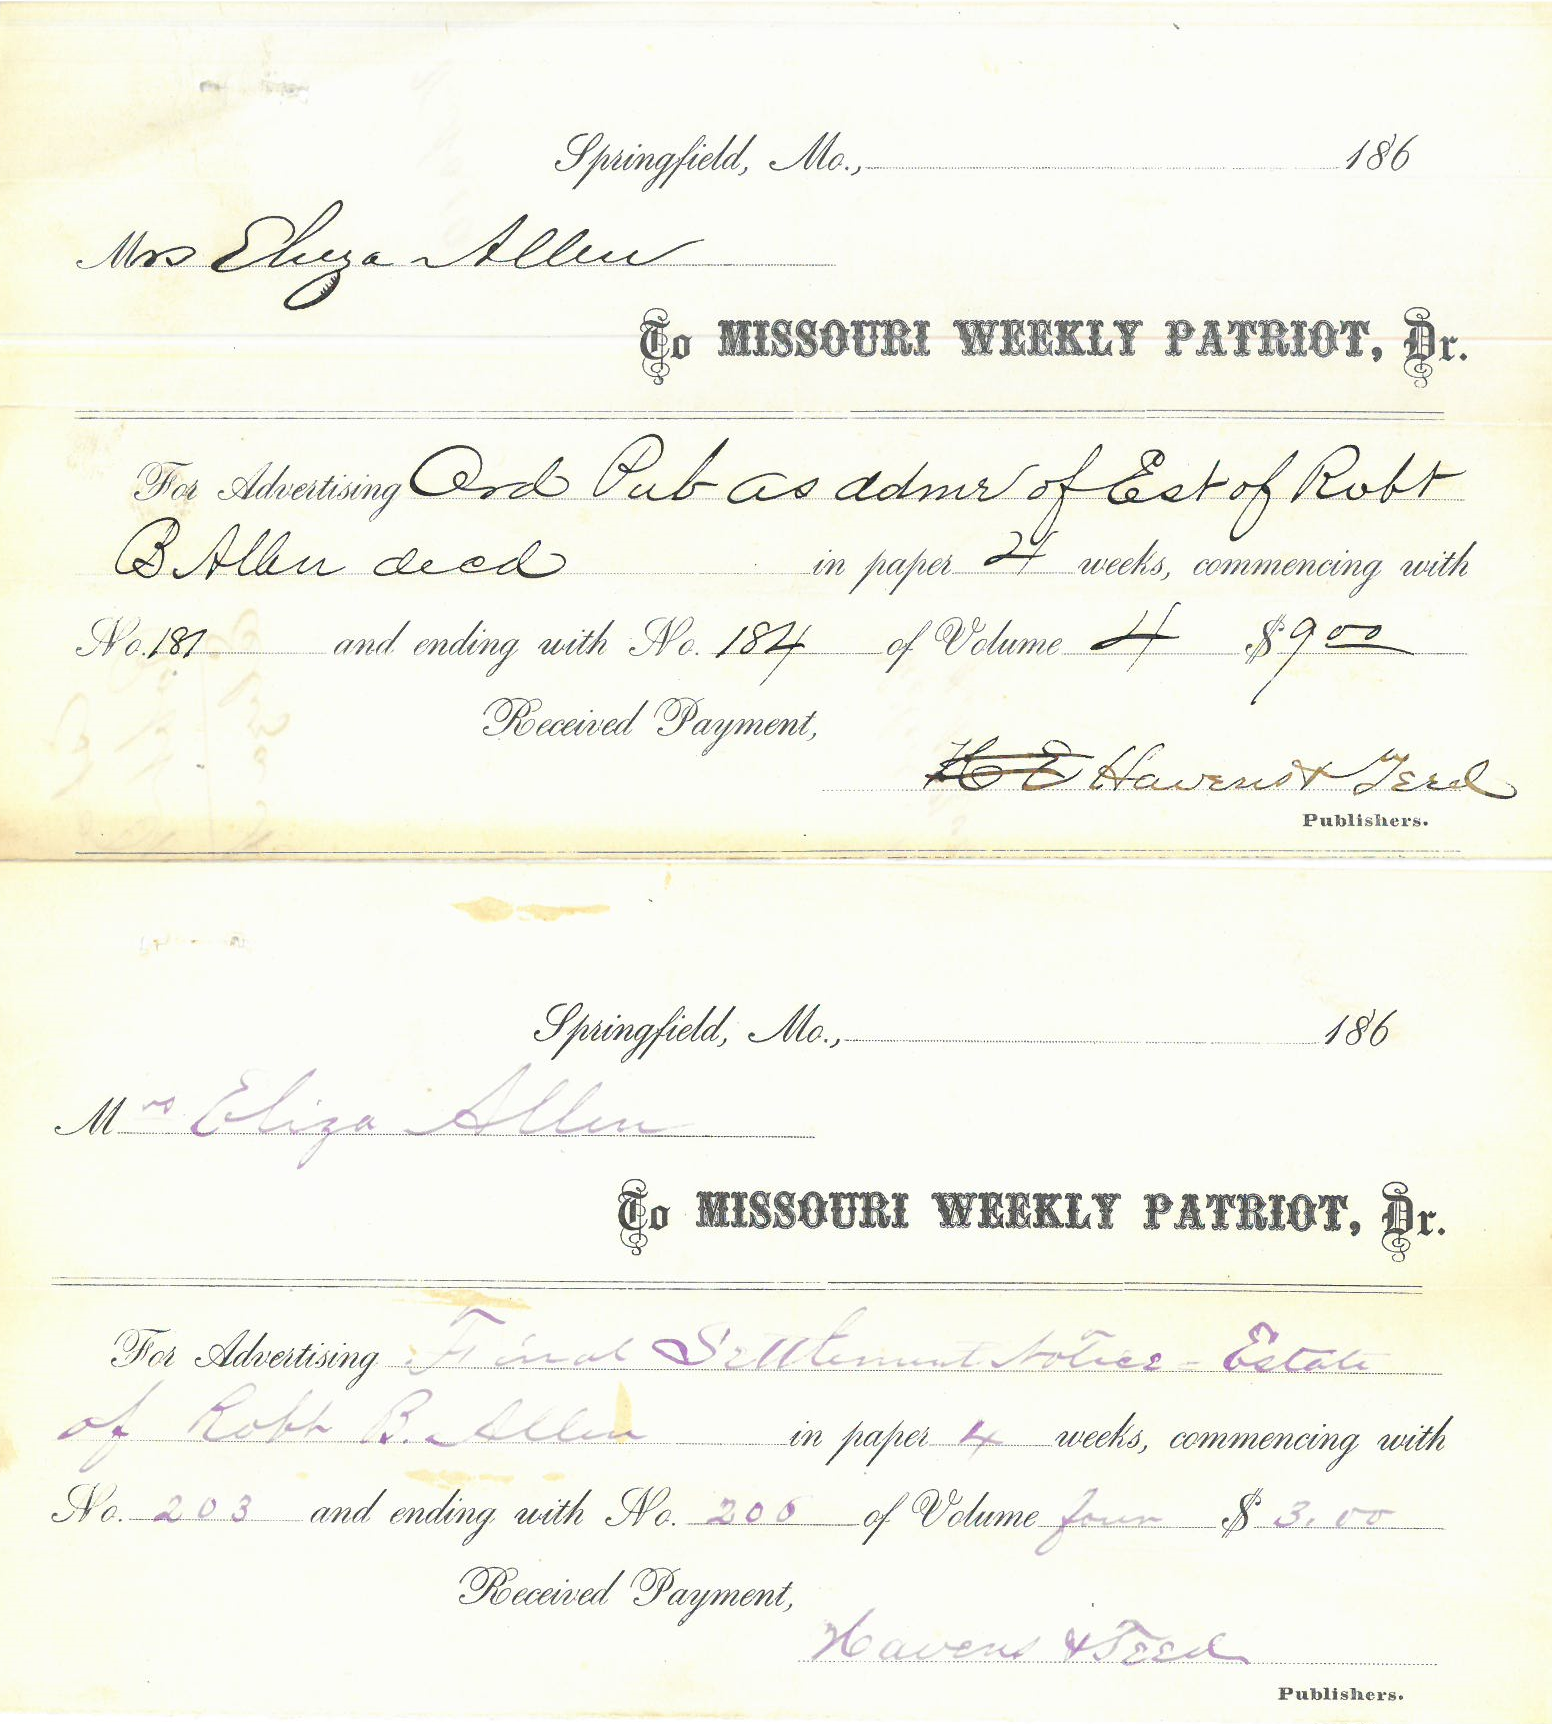 Springfield, Mo., 186
Mrs Eliza Allen
To MISSOURI WEEKLY PATRIOT, Dr.
For Advertising Ord Pub as admr of Est of Robt
B Allen decd in paper 4 weeks, commencing with
No. 181 and ending with No. 184 of Volume 4 $9 00
Received Payment,
H E Havens & Teed
Publishers.
Springfield, Mo., 186
Mrs Eliza Allen
To MISSOURI WEEKLY PATRIOT, Dr.
For Advertising Final Settlement Notice - Estate
of Robt B. Allen in paper 4 weeks, commencing with
No. 203 and ending with No. 206 of Volume four $ 3.00
Received Payment,
Havens & Teed
Publishers.